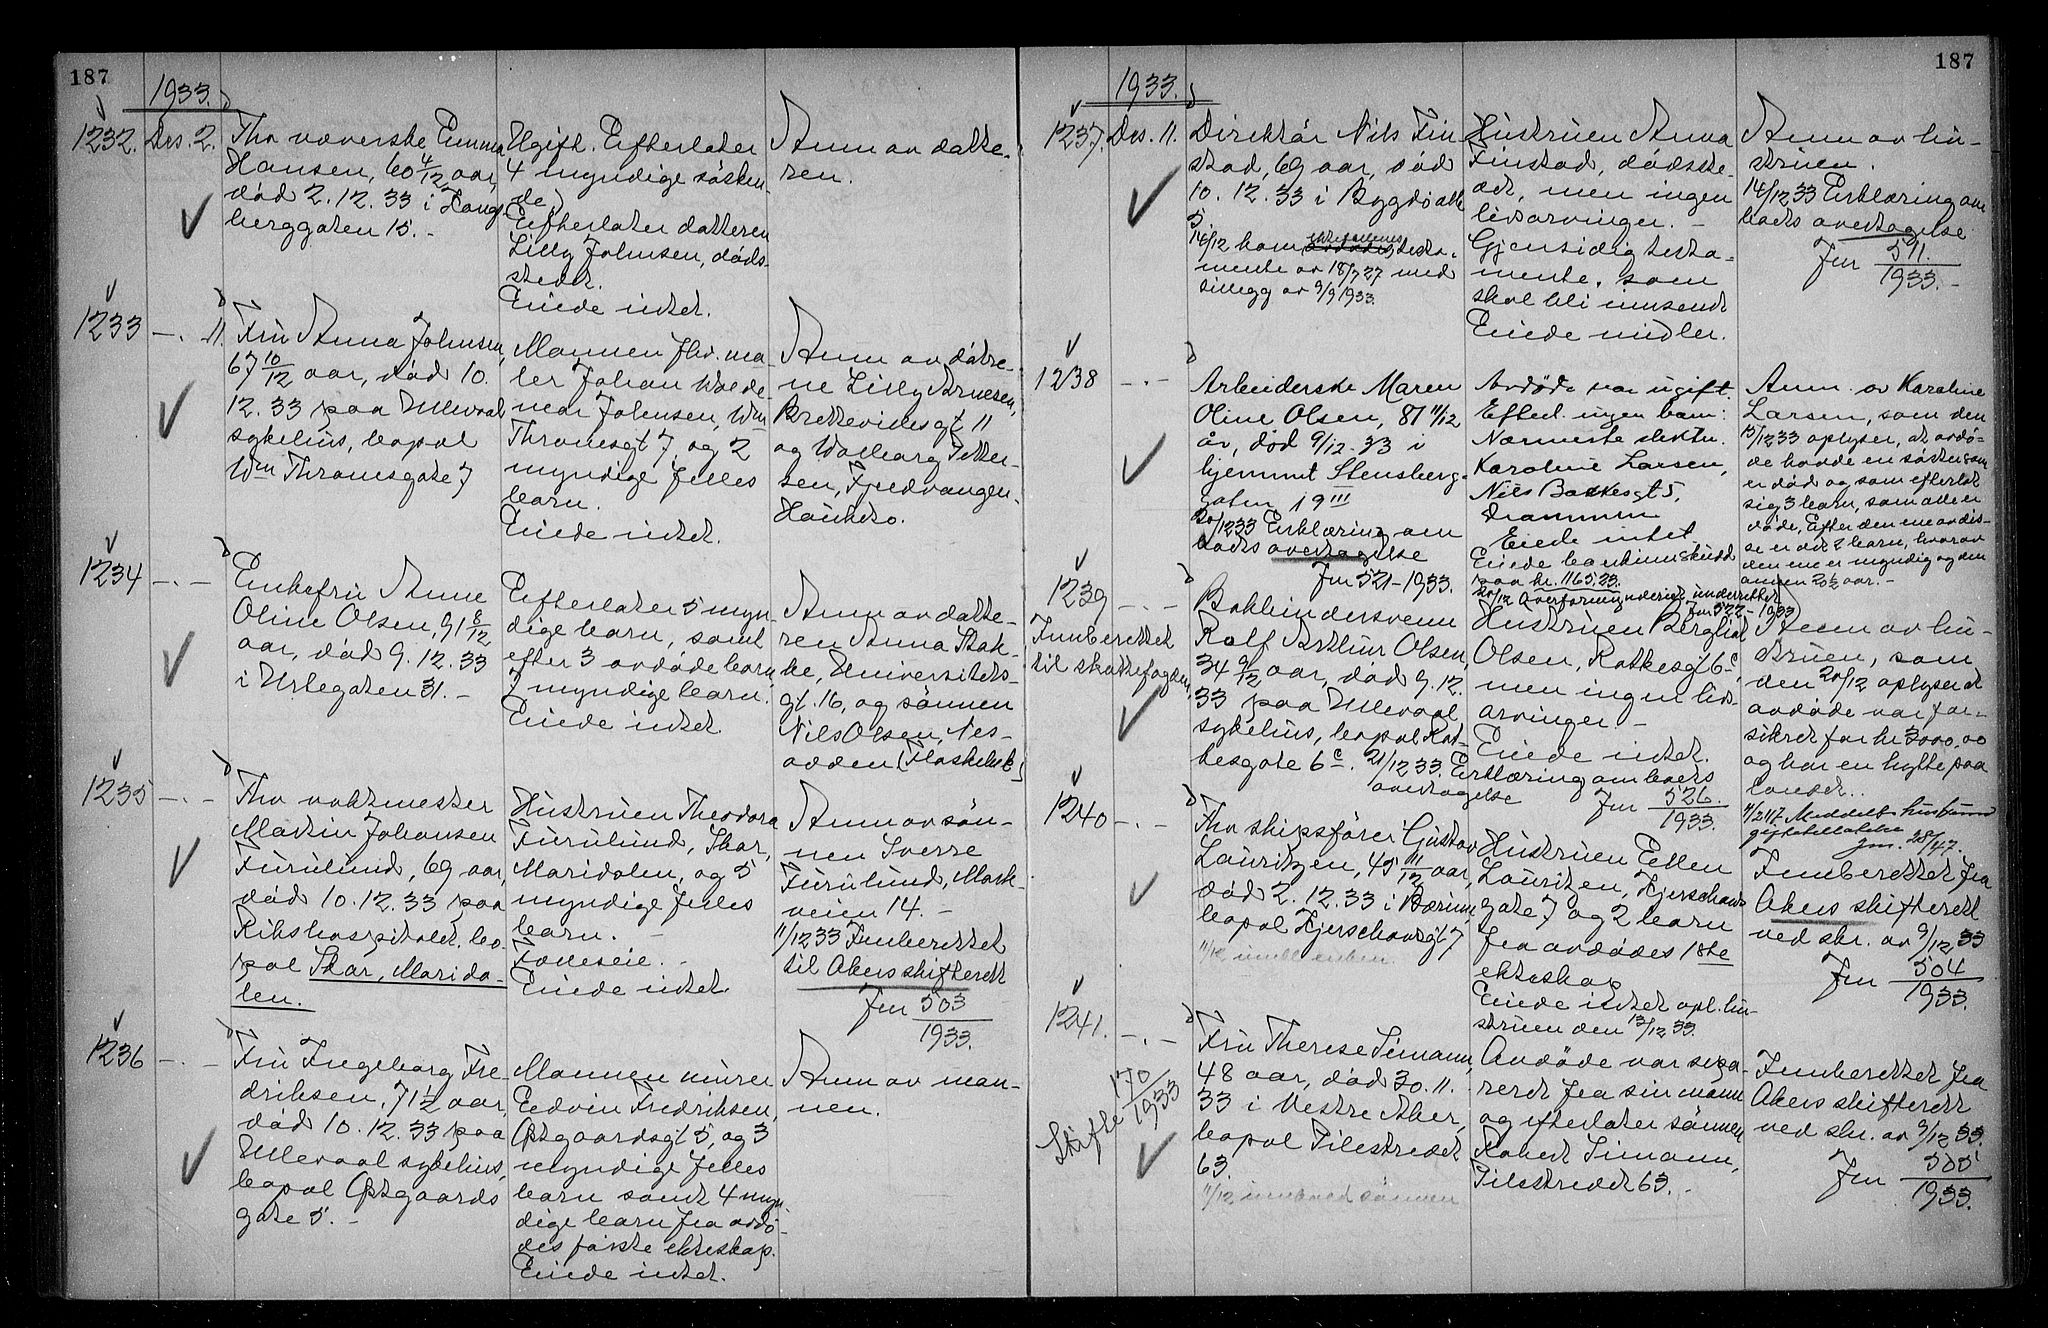 187
1933.
1232. Des. 2.
Fhv væverske Emma
Hansen, 60 4/12 aar,
død 2.12.33 i Lang-
berggaten 15. -
Ugift. Efterlater
4 myndige søsken-
de.
Efterlater datteren
Lilly Johnsen, døds-
stedet.
Eiede intet.
Anm av datte-
ren.
1233 -.- 11.
Fru Anna Johnsen,
67 10/12 aar, død 10.
12.33 paa Ullevaal
sykehus, bopæl
Wm Thranesgate 7
Mannen fhv. ma-
ler Johan Walde-
mar Johnsen, Wm
Thranesgt 7, og 2
myndige felles
barn.
Eiede intet.
Anm av døtre-
ne Lilly Arnesen,
Brettevilesgt 11
og Walborg Petter-
sen, Fjeldvangen,
Hauketo.
1234 -.-
Enkefru Anne
Oline Olsen, 91 8/12
aar, død 9.12.33
i Urtegaten 31. -
Efterlater 5 myn-
dige barn, samt
efter 3 avdøde barn
7 myndige barn.
Eiede intet
Anm av datte-
ren Anna Bak-
ke, Universitets-
gt. 16, og sønnen
Nils Olsen, Nes-
odden (Flaskebek)
1235 -.-
Fhv vaktmester
Martin Johansen
Furulund, 69 aar,
død 10.12.33 paa
Rikshospitalet, bo-
pæl Skar, Marida-
len.
Hustruen Theodora
Furulund, Skar,
Maridalen, og 5
myndige felles
barn. -
Fælleseie. -
Eiede intet.
Anm av søn-
nen Sverre
Furulund, Mark-
veien 14. -
11/12 33 Innberettet
til Akers skifterett
Jnr 503
1933.
1236 -.-
Fru Ingeborg Fre-
driksen, 71 1/2 aar,
død 10.12.33 paa
Ullevaal sykehus,
bopæl Østgaards
gate 5. -
Mannen murer
Edvin Fredriksen,
Østgaardsgt 5, og 3
myndige felles
barn samt 4 myn-
dige barn fra avdø-
des første ekteskap.
Eiede intet.
Anm av man-
nen.
187
1933.
1237. Des. 11.
Direktør Nils Fin
stad, 69 aar, død
10.12.33 i Bygdø alle
5.
14/12 kom ektefellenes testa-
mente av 18/7 27 med
tillegg av 9/9 1933.
Hustruen Anna
Finstad, dødsste-
det, men ingen
livsarvinger. -
Gjensidig testa-
mente, som
skal bli innsendt
Eiede midler.
Anm av hu-
struen.
14/12 33 Erklæring om
boets overtagelse
Jnr 511.
1933. -
1238 -.-
Arbeiderske Maren
Oline Olsen, 81 11/12
år, død 9/12.33 i
hjemmet Stensberg-
gaten 19 III
20/12 33 Erklæring om
boets overtagelse
Jnr 521 - 1933.
Avdøde var ugift.
Efterl. ingen barn.
Nærmeste slektn.
Karoline Larsen,
Nils Bakkesgt 5,
Drammen
Eiede intet.
Eiede bankinnskudd
paa kr. 1165.23.
Jnr 522 - 1933
Anm. av Karoline
Larsen, som den
15/12 33 oplyser, at avdø-
de hadde en søster som
er død og som efterlot
sig 3 barn, som alle er
døde. Efter den ene av dis-
se er det 2 barn, hvorav
den ene er myndig og den
annen 20 1/2 aar. -
1239 -.-
Innberettet
til skattefogden
Bokbindersvenn
Rolf Arthur Olsen,
34 9/12 aar, død 9.12.
33 paa Ullevaal
sykehus, bopæl Rat-
kesgate 6 c. 21/12 33. Erklæring om boets
overtagelse
Hustruen Bergliot
Olsen, Ratkesgt 6 c,
men ingen livs-
arvinger. -
Eiede intet.
Jnr 526.
1933.
Anm av hu-
struen, som
den 20/12 oplyser at
avdøde var for-
sikret for kr 3000,00
og har en hytte paa
landet..
Jnr. 28/47.
1240 -.-
Fhv skipsfører Gustav
Lauritzen, 45 11/12 aar,
død 2.12.33 i Bærum,
bopæl Hjerschowsgt 7
Hustruen Ellen
Lauritzen, Hjerschows
gate 7 og 2 barn
fra avdødes 1ste
ekteskap
Eiede intet opl. hu-
struen den 13/12 33.
Innberettet fra
Akers skifterett
ved skr. av 9/12 33
Jnr 504
1933.
1241. -.-
Skifte 170
1933
Fru Therese Simann,
48 aar, død 30.11.
33 i Vestre Aker,
bopæl Pilestredet
63.
Avdøde var sepa-
rert fra sin mann
og efterlater sønnen
Robert Simann,
Pilestredet 63. -
Innberettet fra
Akers skifterett
ved skr. av 9/12 33.
Jnr 505
1933.